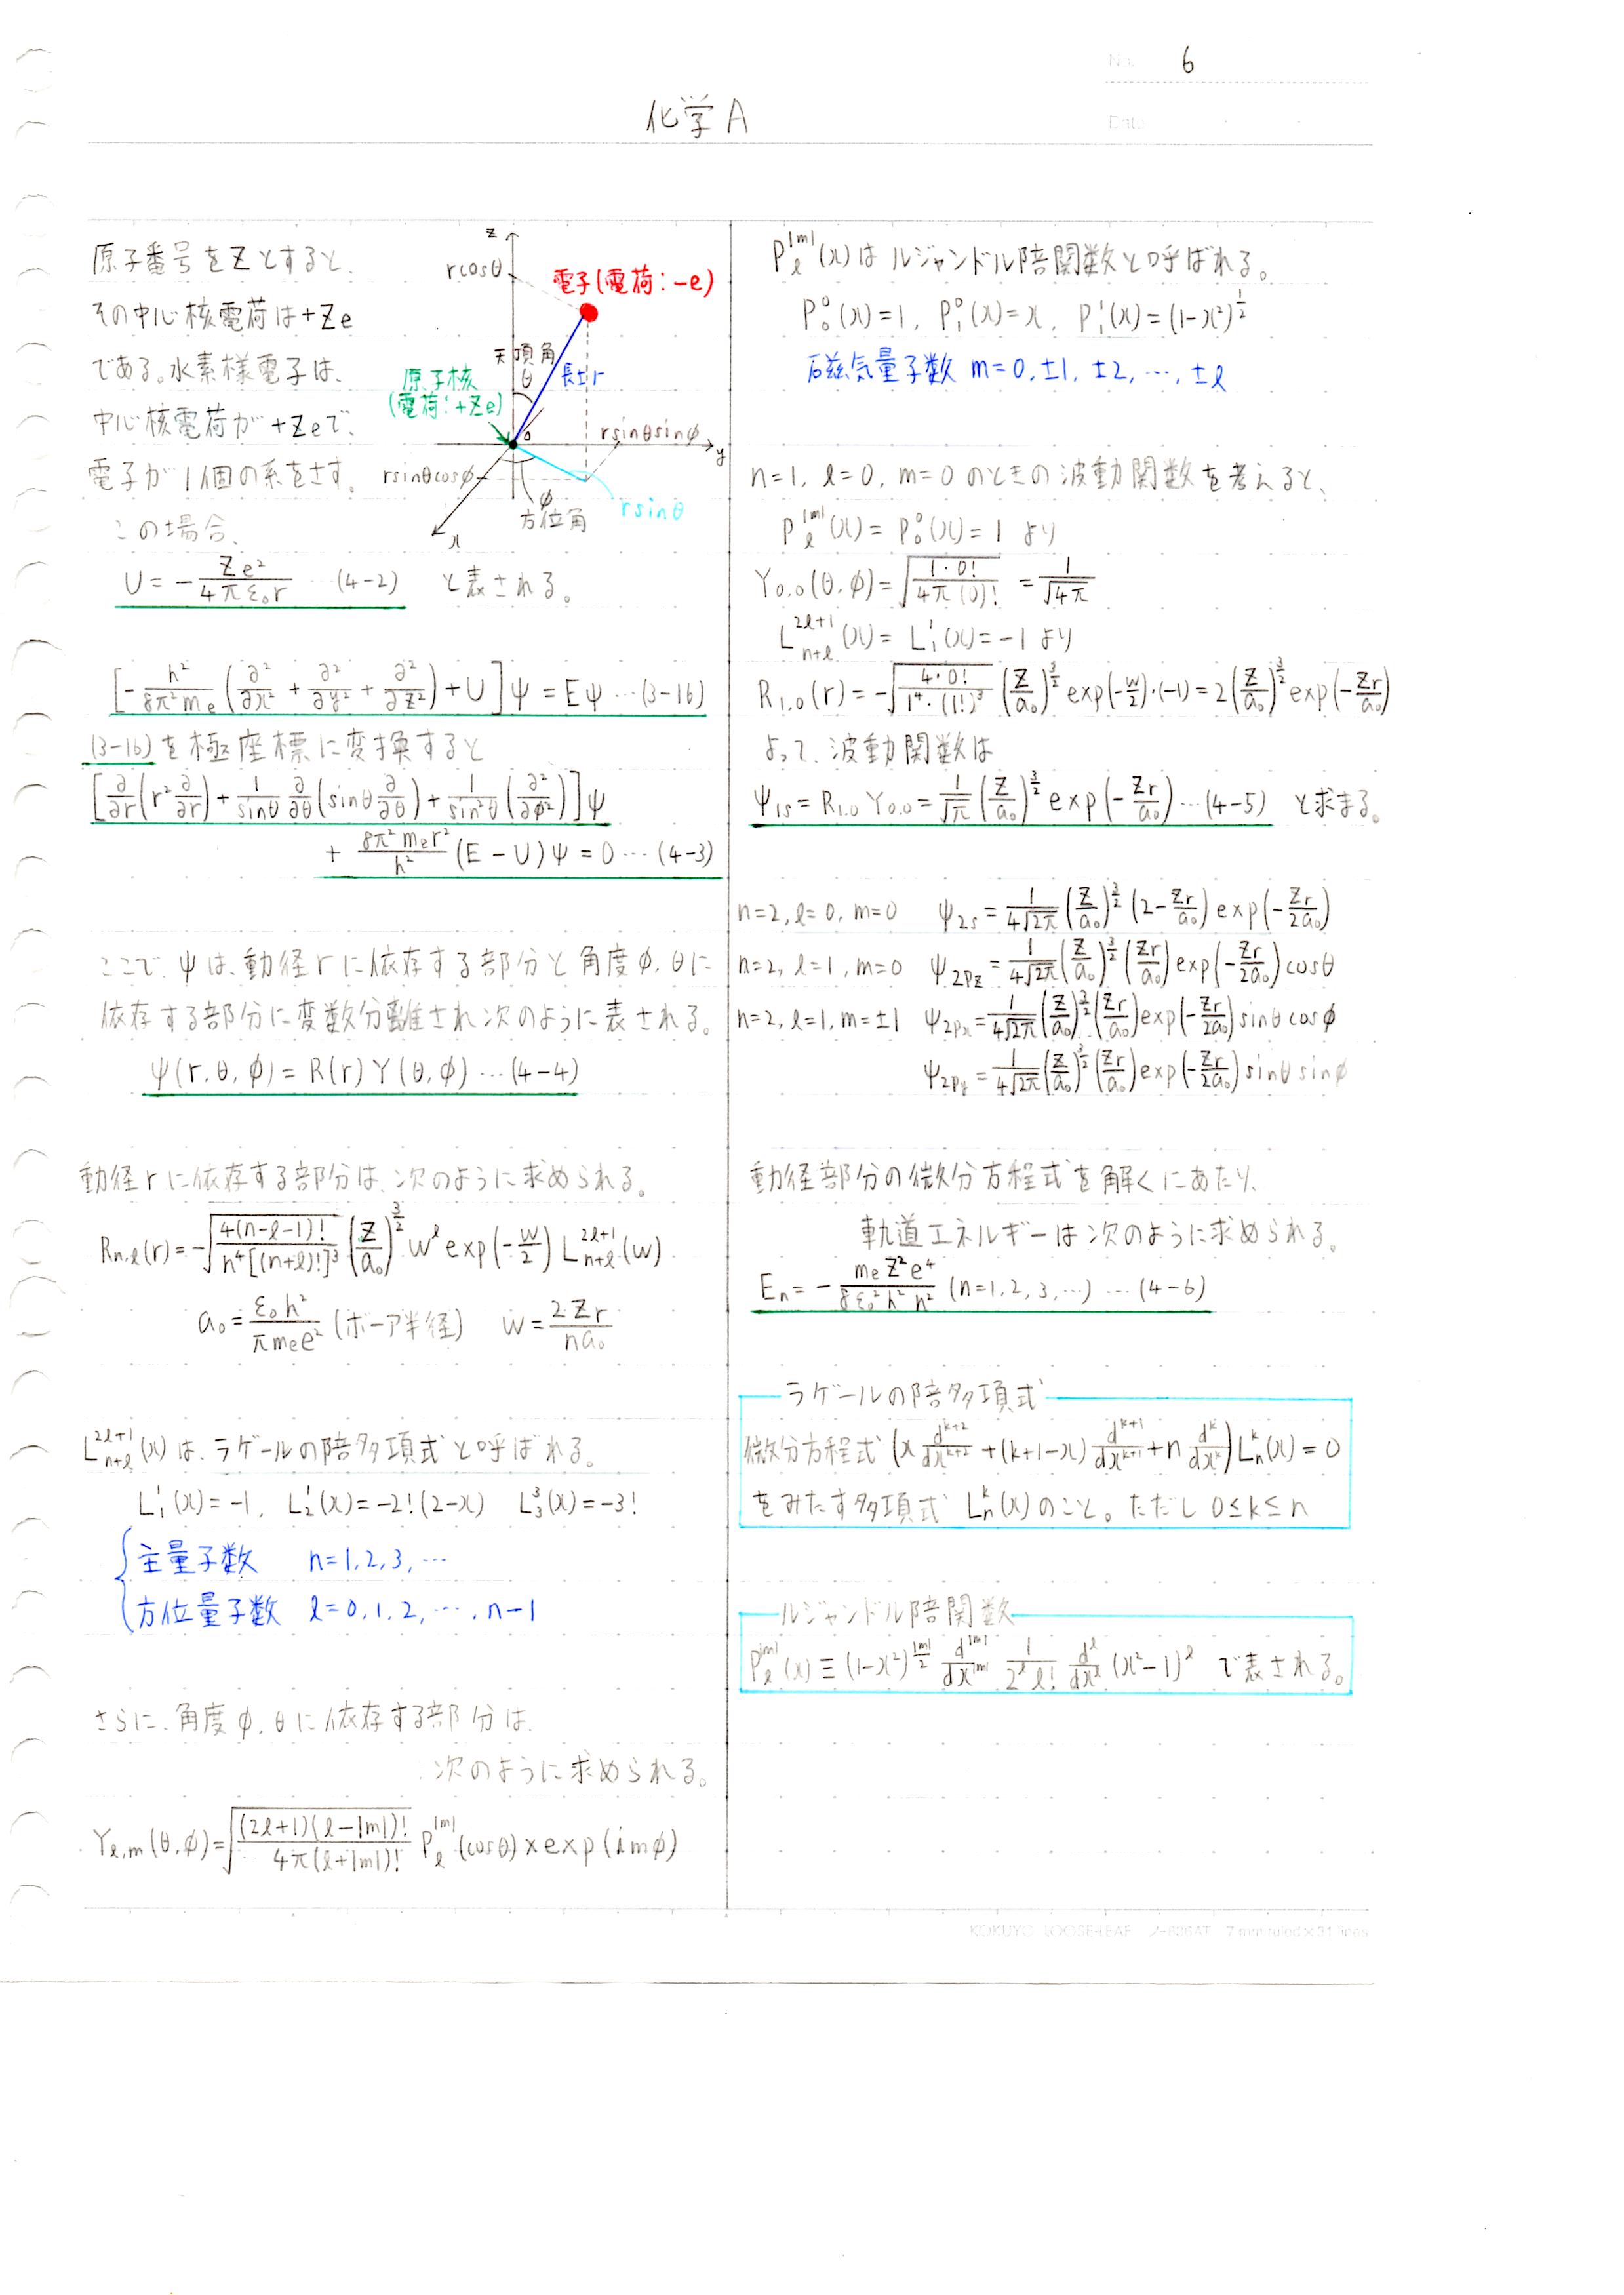 No. 6
化学A
Date
原子番号をZとすると、
その中心核電荷は+Ze
である。水素様電子は、
中心核電荷が+Zeで、
電子が1個の系をさす。
この場合、
z
rcosθ
電子(電荷:-e)
天頂角
θ
長さr
原子核
(電荷:+Ze)
0
rsinθsinφ
y
rsinθcosφ
φ
方位角
rsinθ
x
U = -Ze²/4πε₀r …(4-2) と表される。
[-h²/8π²mₑ (∂²/∂x² + ∂²/∂y² + ∂²/∂z²) + U]ψ = Eψ …(3-16)
(3-16)を極座標に変換すると
[∂/∂r(r²∂/∂r) + 1/sinθ ∂/∂θ(sinθ∂/∂θ) + 1/sin²θ(∂²/∂φ²)]ψ
+ 8π²mₑr²/h² (E-U)ψ = 0 …(4-3)
ここで、ψは、動径rに依存する部分と角度φ,θに
依存する部分に変数分離され次のように表される。
ψ(r,θ,φ) = R(r)Y(θ,φ) …(4-4)
動径rに依存する部分は、次のように求められる。
Rn,ℓ(r) = -√(4(n-ℓ-1)!/n⁴[(n+ℓ)!]³) (Z/a₀)^(3/2) w^ℓ exp(-w/2) L_(n+ℓ)^(2ℓ+1)(w)
a₀ = ε₀h²/πmₑe² (ボーア半径) w = 2Zr/na₀
L_(n+ℓ)^(2ℓ+1)(x)は、ラゲールの陪多項式と呼ばれる。
L₁¹(x)=-1, L₂¹(x)=-2!(2-x) L₃³(x)=-3!
主量子数 n=1,2,3,…
方位量子数 ℓ=0,1,2,…,n-1
さらに、角度φ,θに依存する部分は、
次のように求められる。
Yℓ,m(θ,φ) = √((2ℓ+1)(ℓ-|m|)!/4π(ℓ+|m|)!) P_ℓ^|m|(cosθ)×exp(imφ)
P_ℓ^|m|(x)はルジャンドル陪関数と呼ばれる。
P₀⁰(x)=1, P₁⁰(x)=x, P₁¹(x)=(1-x²)^(1/2)
磁気量子数 m=0,±1,±2,…,±ℓ
n=1, ℓ=0, m=0のときの波動関数を考えると、
P_ℓ^|m|(x)=P₀⁰(x)=1 より
Y₀,₀(θ,φ) = √(1・0!/4π(0)!) = 1/√4π
L_(n+ℓ)^(2ℓ+1)(x) = L₁¹(x) = -1 より
R₁,₀(r) = -√(4・0!/1⁴・(1!)³) (Z/a₀)^(3/2) exp(-w/2)・(-1) = 2(Z/a₀)^(3/2) exp(-Zr/a₀)
よって、波動関数は
ψ1s = R₁,₀Y₀,₀ = 1/√π (Z/a₀)^(3/2) exp(-Zr/a₀) …(4-5) と求まる。
n=2, ℓ=0, m=0 ψ2s = 1/4√2π (Z/a₀)^(3/2) (2-Zr/a₀) exp(-Zr/2a₀)
n=2, ℓ=1, m=0 ψ2pz = 1/4√2π (Z/a₀)^(3/2) (Zr/a₀) exp(-Zr/2a₀) cosθ
n=2, ℓ=1, m=±1 ψ2px = 1/4√2π (Z/a₀)^(3/2) (Zr/a₀) exp(-Zr/2a₀) sinθcosφ
ψ2py = 1/4√2π (Z/a₀)^(3/2) (Zr/a₀) exp(-Zr/2a₀) sinθsinφ
動径部分の微分方程式を解くにあたり、
軌道エネルギーは次のように求められる。
En = -mₑZ²e⁴/8ε₀²h²n² (n=1,2,3,…) …(4-6)
ラゲールの陪多項式
微分方程式 (x d^(k+2)/dx^(k+2) + (k+1-x) d^(k+1)/dx^(k+1) + n d^k/dx^k) L_n^k(x) = 0
をみたす多項式 L_n^k(x)のこと。ただし 0≤k≤n
ルジャンドル陪関数
P_ℓ^|m|(x) ≡ (1-x²)^(|m|/2) d^|m|/dx^|m| 1/2^ℓ ℓ! d^ℓ/dx^ℓ (x²-1)^ℓ で表される。
KOKUYO LOOSE-LEAF ノ-836AT 7 mm ruled×31 lines